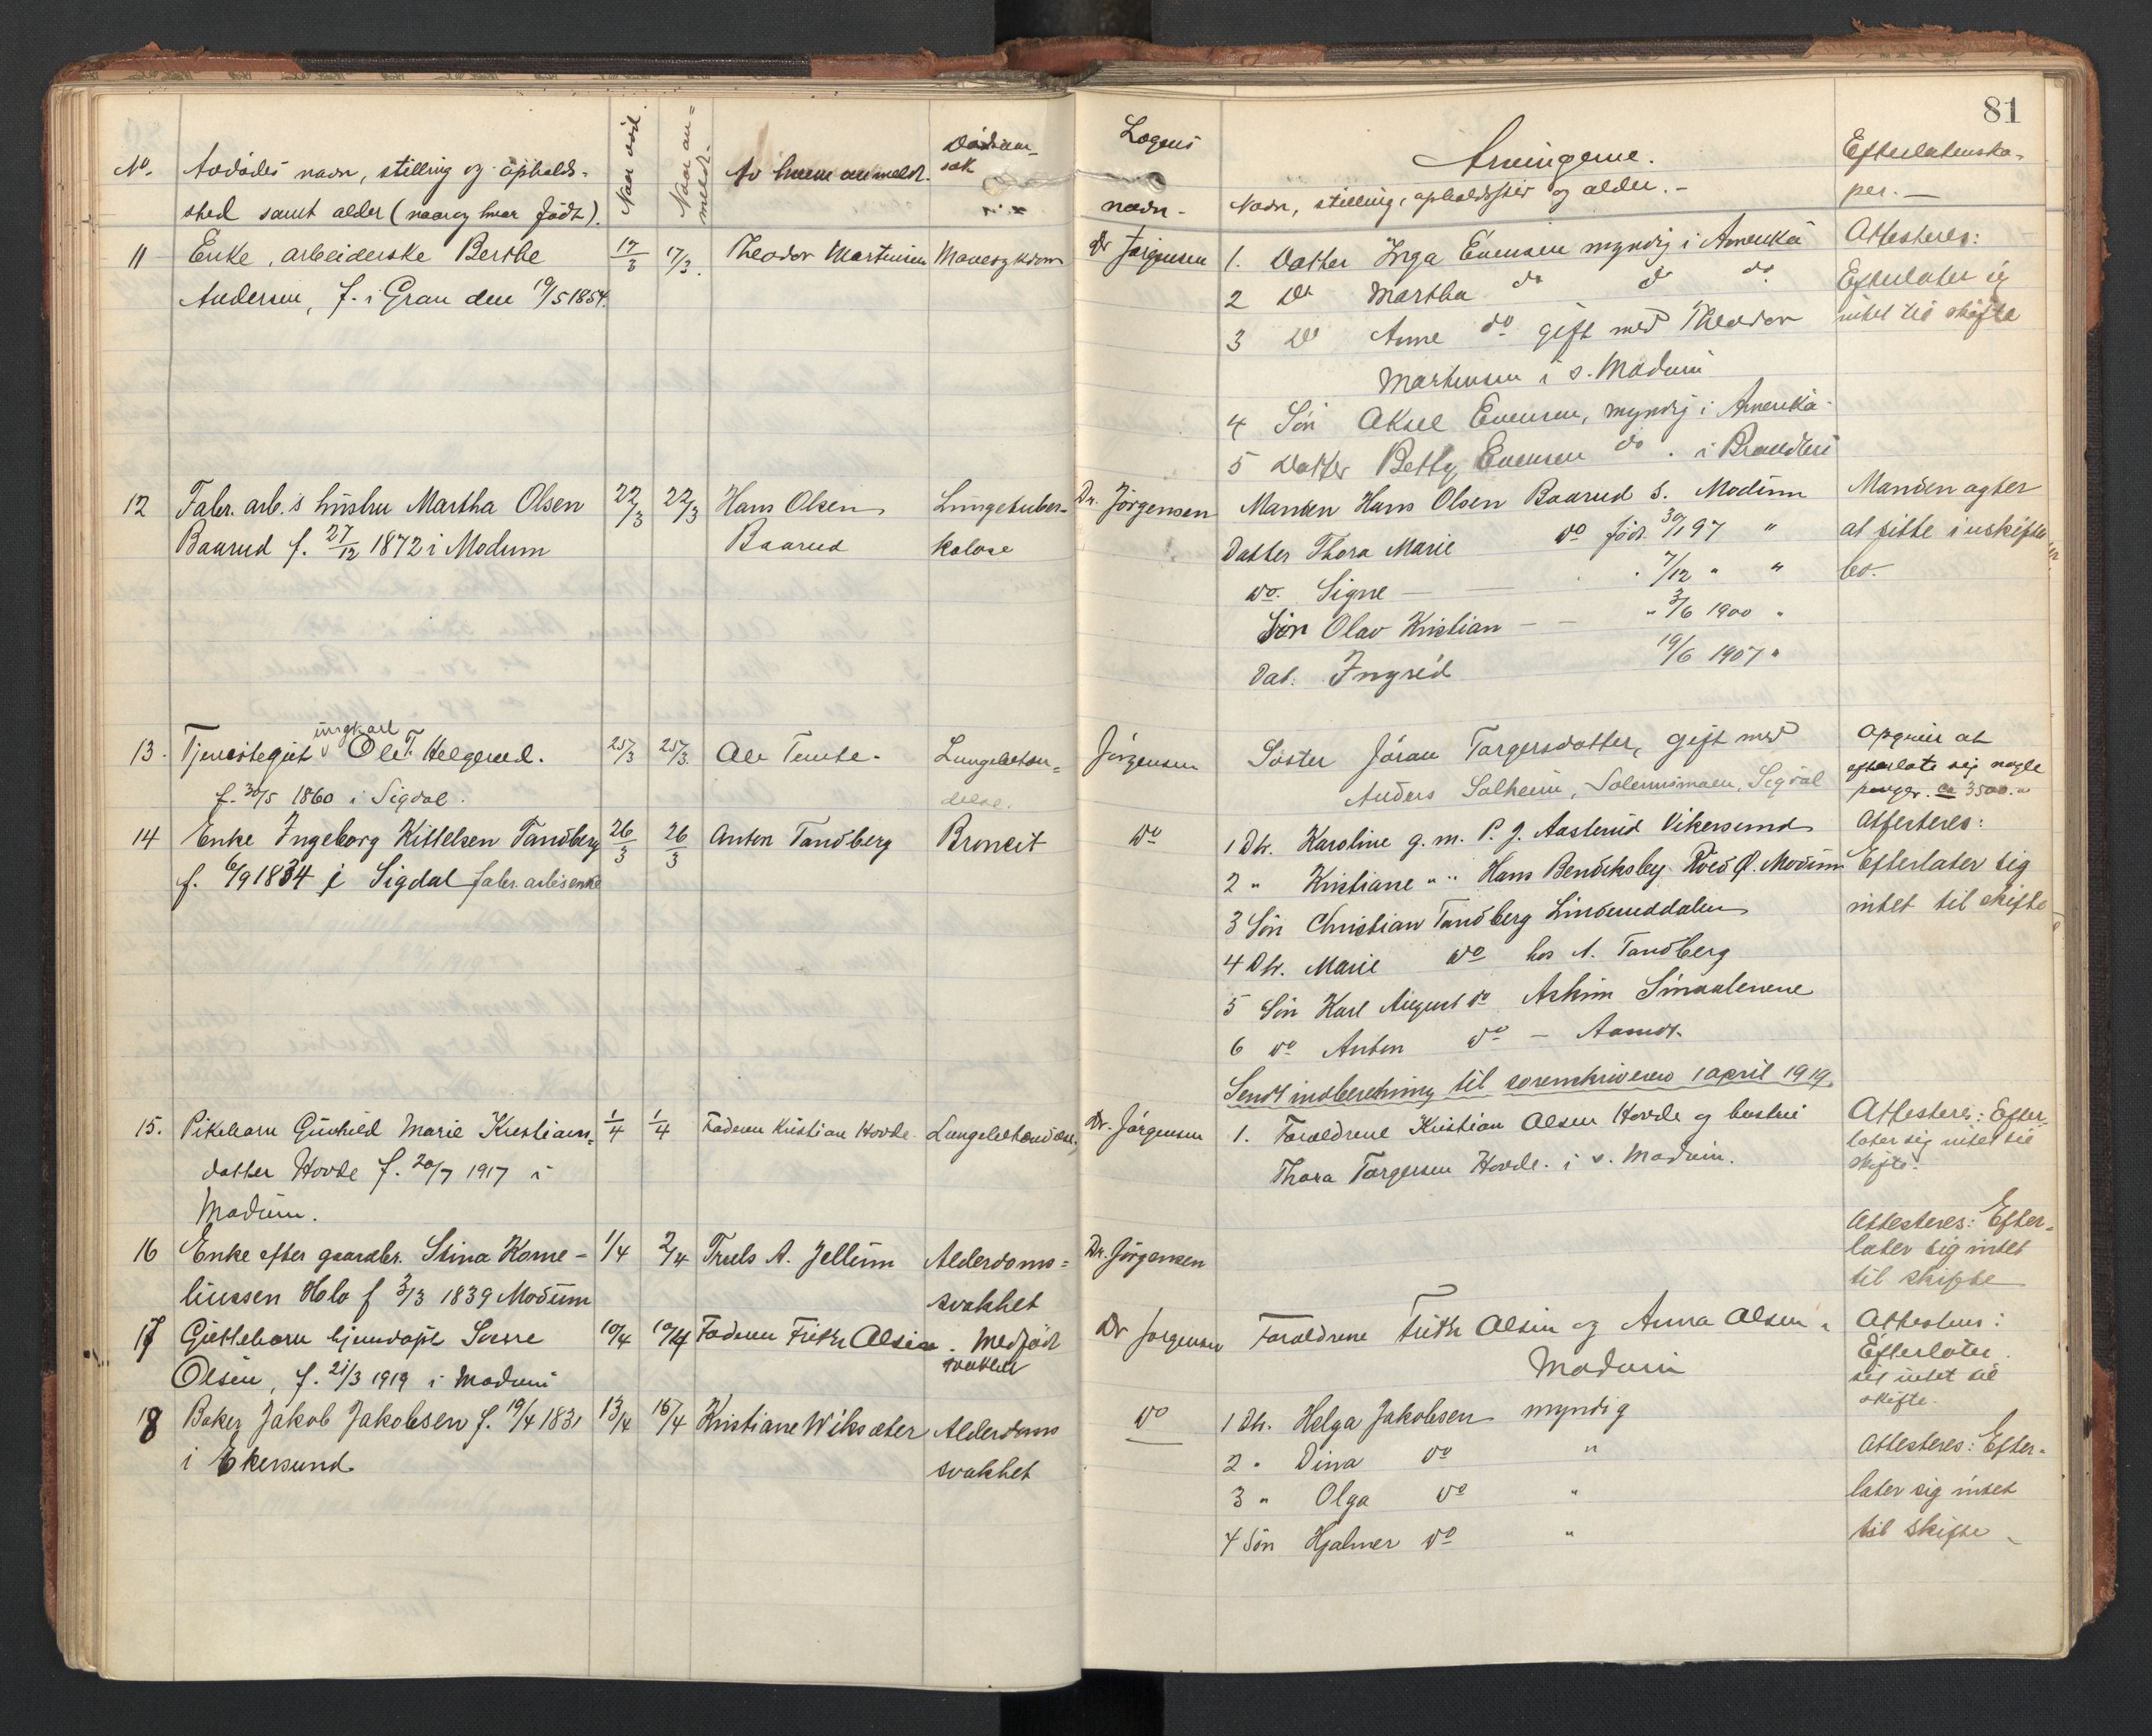 81
No. Avdødes navn, stilling og opholds-
sted samt alder (naar og hvor født).
Naar død.
Naar an-
meldt.
Av hvem anmeldt.
Dødsaar-
sak
Lægens
navn.
Arvingerne.
Navn, stilling, opholdssted og alder.
Efterladenska-
per.
11 Enke, arbeiderske Berthe
Andersen, f. i Gran den 19/5 1854.
17/3 17/3. Theodor Martinsen Mavesykdom
Dr Jørgensen
1. Datter Inga Evensen myndig i Amerika
2 Do Martha do do do
3 Do Anne do gift med Theodor
Martensen i s. Modum
4 Søn Aksel Evensen, myndig i Amerika
5 Datter Betty Evensen do. i
Attesteres:
Efterlater sig
intet til skifte
12 Fabr. arb.s hustru Martha Olsen
Baarud f. 27/12 1872 i Modum
22/3 22/3 Hans Olsen
Baarud
Lungetuber-
kolose
Dr. Jörgensen
Manden Hans Olsen Baarud S. Modum
Datter Thora Marie do föd. 30/1 97 "
do. Signe — 7/12 " "
Søn Olav Kristian — — " 3/6 1900 "
Dat. Ingrid 19/6 1907 "
Manden agter
at sitte i uskiftet
bo.
13. Tjenestegut ungkarl Ole T. Helgerud.
f. 30/5 1860 i Sigdal.
25/3 25/3. Ole Tente.
Lungebeten=
delse.
Jørgensen
Søster Jöran Torgersdatter, gift med
Anders Solheim, Solemsmoen, Sigdal
Opgives at
efterlate sig nogle
penger. ca 3500.
14 Enke Ingeborg Kittelsen Tandberg
f. 6/9 1834 i Sigdal fabr. arb.s enke
26/3 26/3 Anton Tandberg Bronkit
do
1 Dtr. Karoline g. m. P. J. Aasterud Vikersund
2 " Kristiane " " Hans Bendiksby Ø. Modum
3 Søn Christian Tandberg Linderuddalen
4 Dtr. Marie do hos A. Tandberg
5 Søn Karl August do Askim Smaalenene
6 do Anton do — Aamot.
Sendt indberetning til sorenskriveren 1 april 1919.
Attesteres:
Efterlater sig
intet til skifte
15. Pikebarn Gunhild Marie Kristians=
datter Hovde f. 20/7 1917 i
Modum.
1/4 1/4 Faderen Kristian Hovde. Lungebetændelse.
Dr. Jørgensen
1. Foraldrene Kristian Olsen Hovde og hustru
Thora Torgersen Hovde. i s. Modum.
Attesteres: Efter
later sig intet til
skifte.
16 Enke efter gaardbr. Stina Korne-
liussen Holo f 3/3 1839 Modum
1/4 2/4 Truls A. Jellum Alderdoms=
svakhet
Dr. Jørgensen
Attesteres: Efter-
later sig intet
til skifte
17 Guttebarn hjemdøpt Sverre
Olsen, f. 21/3 1919 i Modum
10/4 10/4 Faderen Frithr Olsen. Medfødt
svakhet
Dr Jørgensen
Foraldrene Frithr Olsen og Anna Olsen i
Modum
Attesteres:
Efterlater
sig intet til
skifte.
18 Baker Jakob Jakobsen f. 19/4 1831
i Ekersund.
13/4 15/4 Kristiane Wiksæter Alderdoms
svakhet
do
1 Dtr. Helga Jakobsen myndig
2 " Dina do "
3 " Olga do "
4 Søn Hjalmer do "
Attesteres: Efter-
later sig intet
til skifte